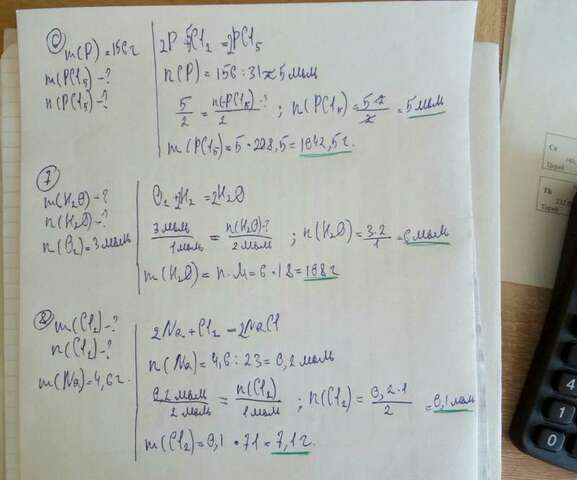 6
m(P)=156г
m(PCl₅)-?
n(PCl₅)-?
2P 5Cl₂ = 2PCl₅
n(P) = 156 : 31 ≈ 5 моль
5/2 = n(PCl₅)-?/2 ; n(PCl₅) = 5·2/2 = 5 моль
m(PCl₅) = 5 · 208,5 = 1042,5 г.
7
m(H₂O)-?
n(H₂O)-?
n(O₂)=3 моль
O₂ + 2H₂ = 2H₂O
3 моль/1 моль = n(H₂O)-?/2 моль ; n(H₂O) = 3·2/1 = 6 моль
m(H₂O) = n·M = 6 · 18 = 108 г
8
m(Cl₂)-?
n(Cl₂)-?
m(Na)=4,6г.
2Na + Cl₂ = 2NaCl
n(Na) = 4,6 : 23 = 0,2 моль
0,2 моль/2 моль = n(Cl₂)/1 моль ; n(Cl₂) = 0,2·1/2 = 0,1 моль
m(Cl₂) = 0,1 · 71 = 7,1 г.
Cs
Th
232,0
4
1
0